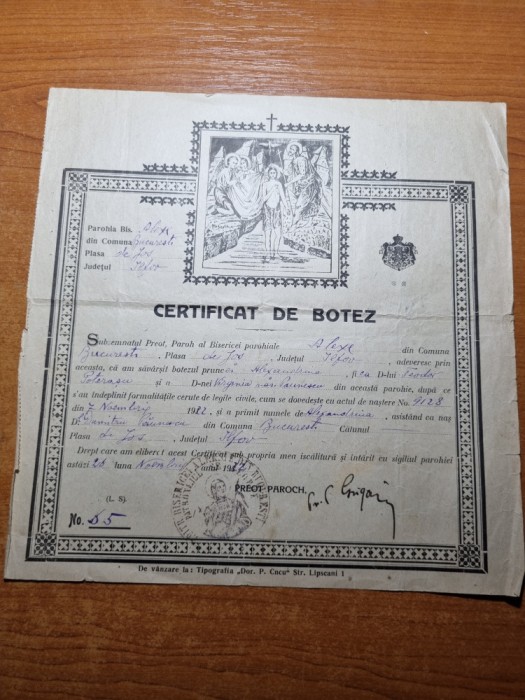 Parohia Bis. Alexe
din Comuna Bucuresti
Plasa de Jos
Județul Ilfov
CERTIFICAT DE BOTEZ
Subsemnatul Preot, Paroh al Bisericei parohiale Alexe din Comuna
Bucuresti, Plasa de Jos, Județul Ilfov, adeveresc prin
aceasta, că am săvârșit botezul pruncei Alexandrina, a D-lui Teodor
și a D-nei Virginia din această parohie, după ce
s'au îndeplinit formalitățile cerute de legile civile, cum se dovedește cu actul de naștere No. 9128
din 7 Noembrie 1922, și a primit numele de Alexandrina, asistând ca naș
D. Dumitru din Comuna Bucuresti Cătunul
Plasa de Jos, Județul Ilfov
Drept care am eliberat acest Certificat sub propria mea iscălitură și întărit cu sigiliul parohiei
astăzi luna Noembrie anul
PREOT-PAROCH,
(L. S)
No. 55
De vânzare la: Tipografia „Dor. P. Cucu" Str. Lipscani 1